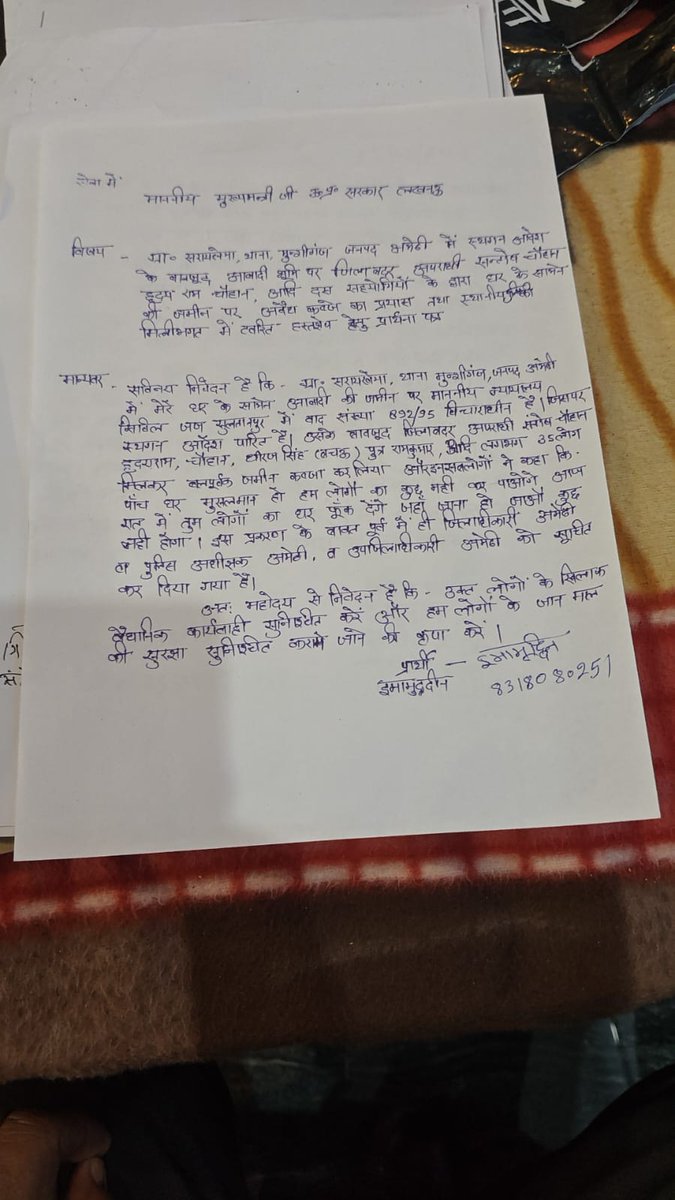 सेवा में
माननीय मुख्यमन्त्री जी उ०प्र० सरकार लखनऊ
विषय - ग्रा० सरायखेमा, थाना, मुन्शीगंज जनपद अमेठी में स्थगन आदेश
के बावजूद आबादी भूमि पर जिलाबदर अपराधी सन्तोष चौहान
हृदय राम चौहान, आदि दस सहयोगियों के द्वारा घर के सामने
की जमीन पर अवैध कब्जे का प्रयास तथा स्थानीय पुलिस की
मिलीभगत में त्वरित हस्तक्षेप हेतु प्रार्थना पत्र
मान्यवर - सविनय निवेदन है कि - ग्रा० सरायखेमा, थाना मुन्शीगंज, जनपद अमेठी
में मेरे घर के सामने आबादी की जमीन पर माननीय न्यायालय
सिविल जज सुलतानपुर में वाद संख्या 892/95 विचाराधीन है। जिसपर
स्थगन आदेश पारित है। उसके बावजूद जिलाबदर अपराधी संतोष चौहान
हृदयराम, चौहान, धीरज सिंह (बचऊ) पुत्र रामकुमार, आदि लगभग 35 लोग
मिलकर बलपूर्वक जमीन कब्जा कर लिया और इन सब लोगों ने कहा कि -
पाँच घर मुसलमान हो हम लोगों का कुछ नहीं कर पाओगे आज
रात में तुम लोगों का घर फूँक देंगे जहाँ जाना हो जाओ कुछ
नहीं होगा। इस प्रकरण के बावत पूर्व में ही जिलाधीकारी अमेठी
व पुलिस अधीक्षक अमेठी, व उपजिलाधीकारी अमेठी को सूचित
कर दिया गया है।
अतः महोदय से निवेदन है कि - उक्त लोगों के खिलाफ
वैधानिक कार्यवाही सुनिश्चित करें और हम लोगों के जान माल
की सुरक्षा सुनिश्चित कराने जाने की कृपा करें।
प्रार्थी - इमामुद्दिन
इमामुद्दीन 8318080251